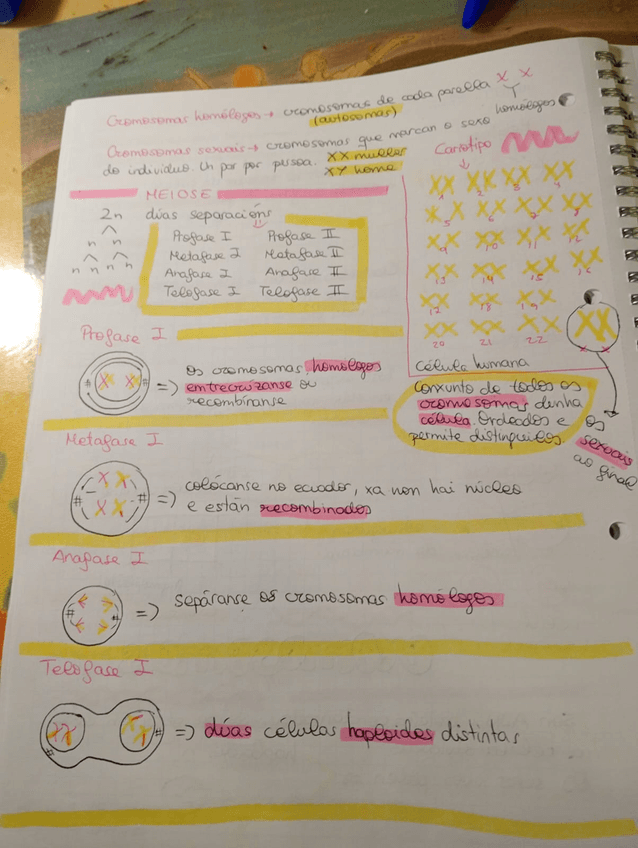 Cromosomas homólogos → cromosomas de cada parella X X
(autosomas)
homólogos
Cromosomas sexuais → cromosomas que marcan o sexo
do individuo. Un par por persoa. XX muller
XY home
MEIOSE
2n dúas separacións
n n
n n n n
Profase I Profase II
Metafase I Metafase II
Anafase I Anafase II
Telofase I Telofase II
Cariotipo
1 2 3 4
5 6 7 8
9 10 11 12
13 14 15 16
17 18 19
20 21 22
célula humana
conxunto de todos os
cromosomas dunha
célula. Ordeados e
permite distinguilos.
os
sexuais
ao final
Profase I
=> os cromosomas homólogos
entrecruzanse ou
recombínanse
Metafase I
=> colócanse no ecuador, xa non hai núcleo
e están recombinados
Anafase I
=> sepáranse os cromosomas homólogos
Telofase I
=> dúas células haploides distintas